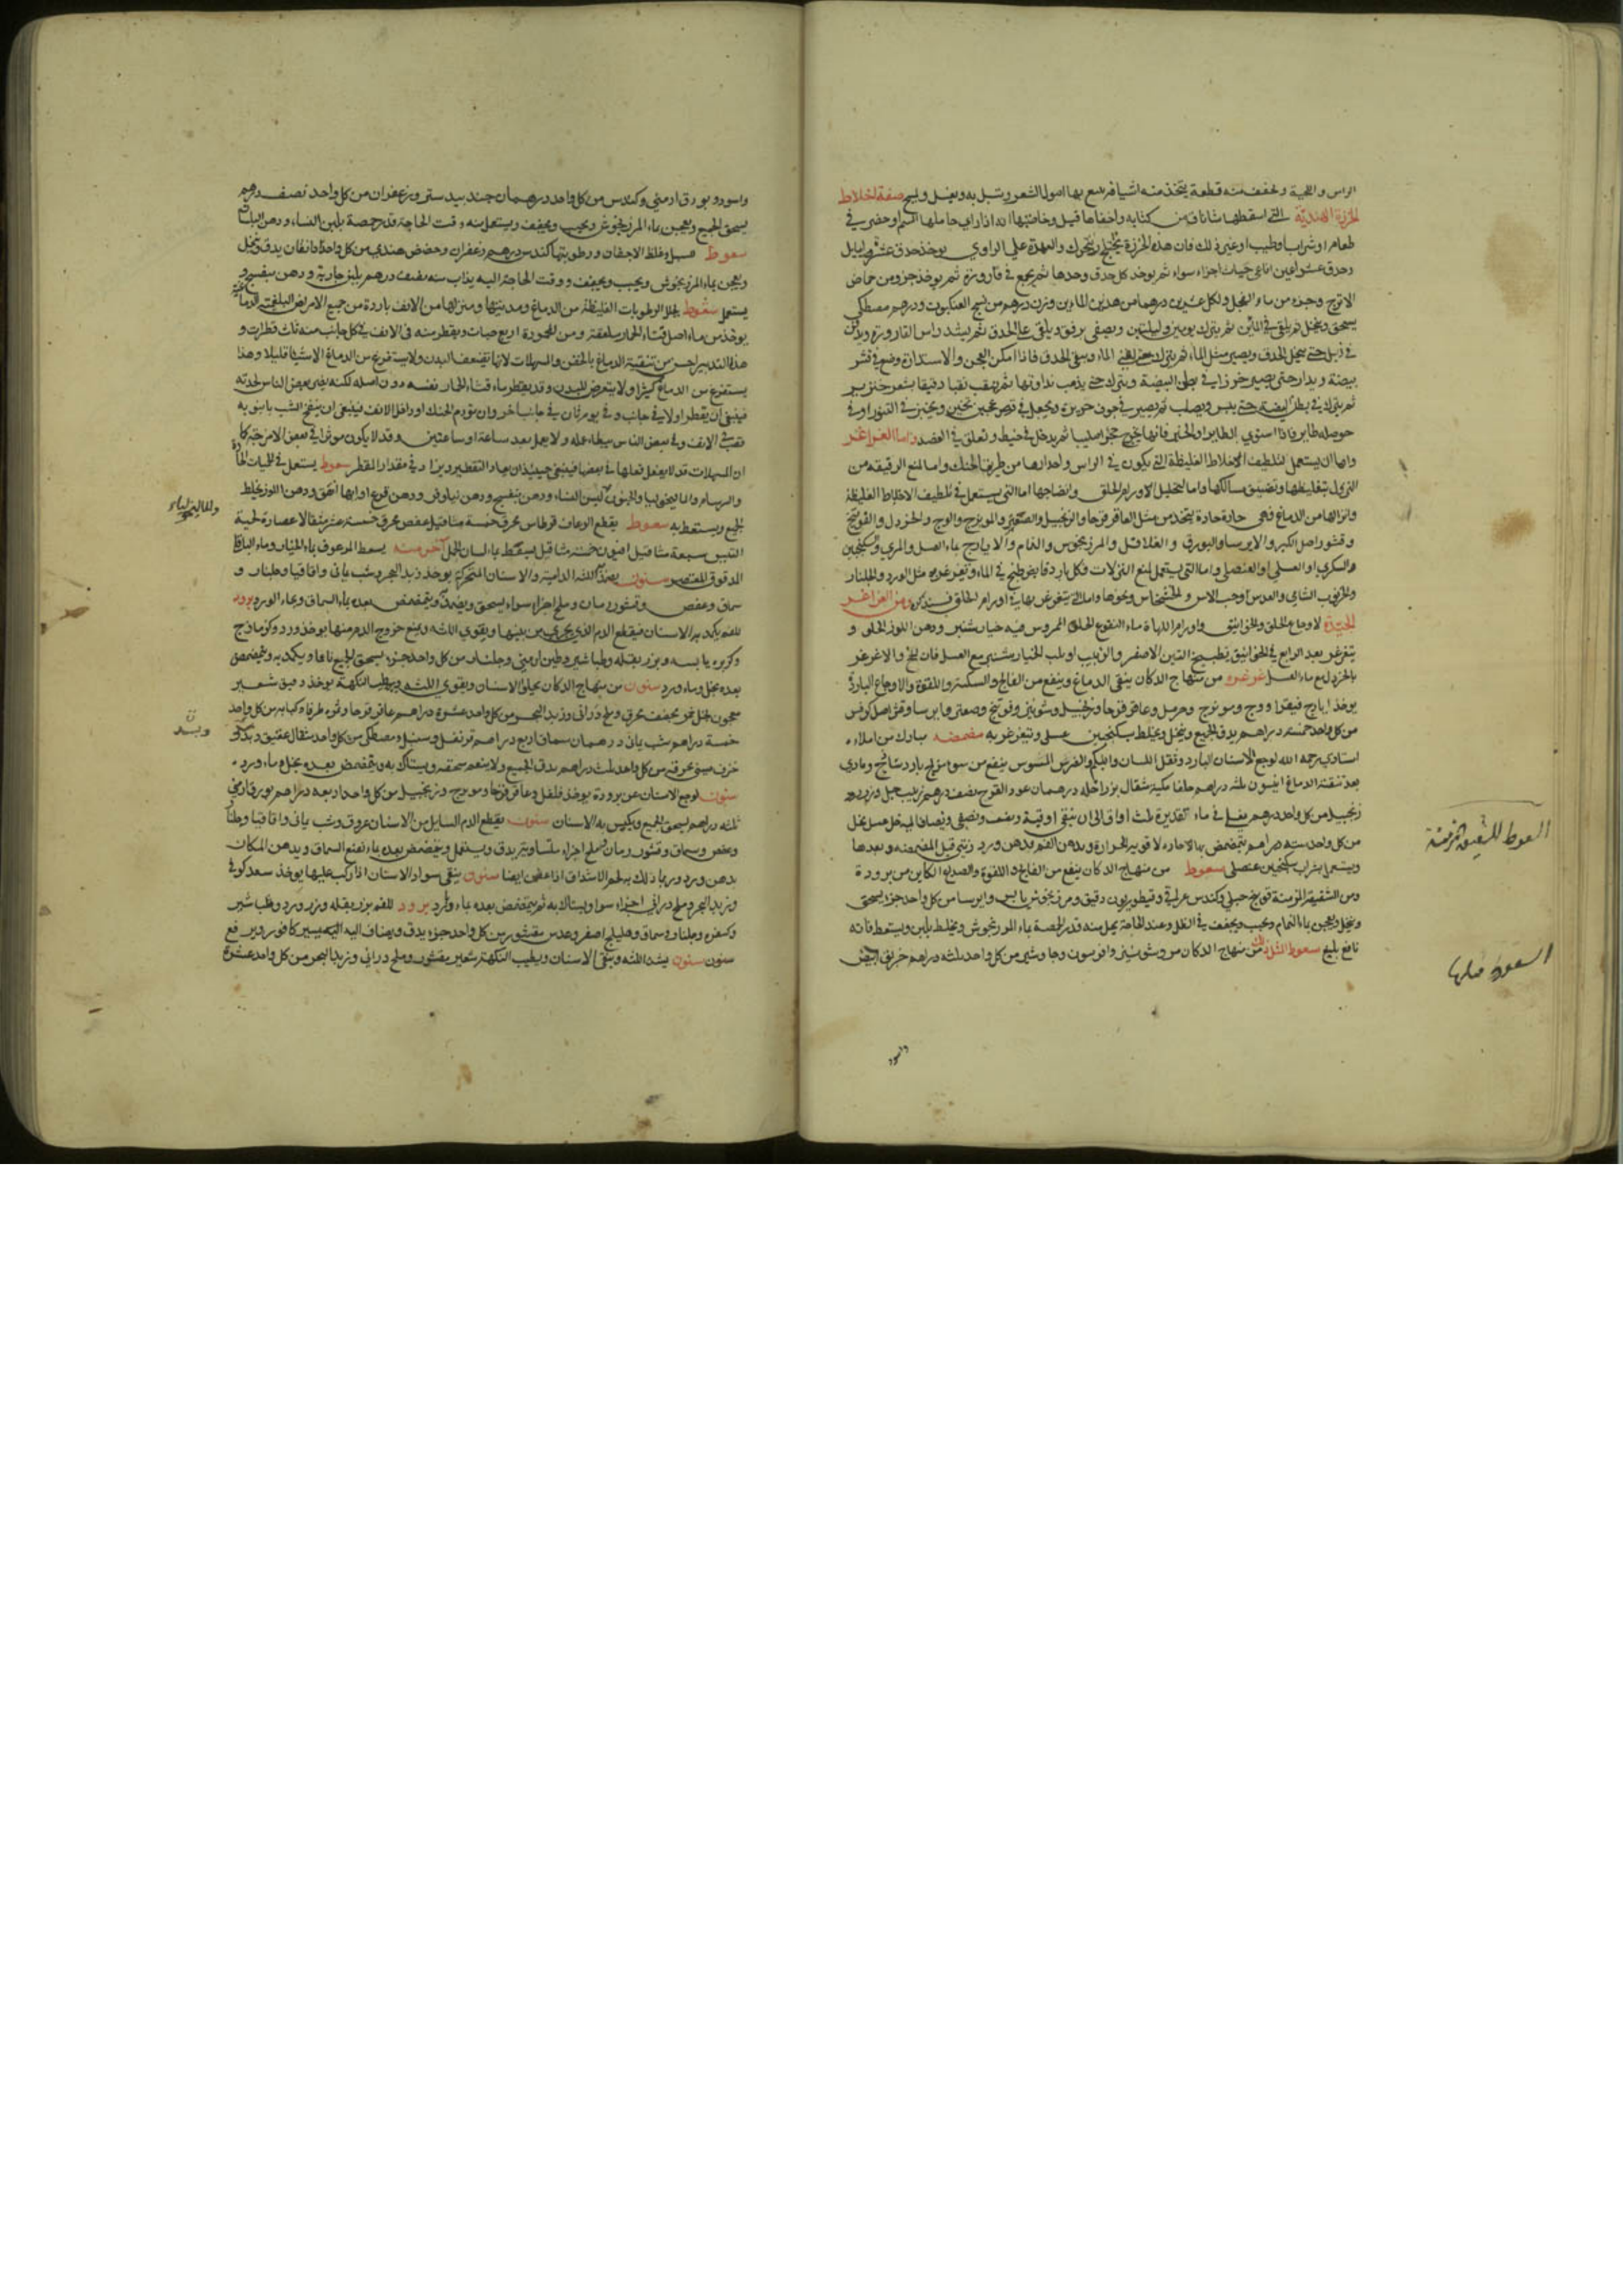 الراس و اللحية و تخفف منه قطعة يتخذ منه اشيافا يتبع بها اصول الشعور و يغسل صفة اخلاط
الخرزة الهندية التي اسقطها شاناق من كتابه و اخفاها قيل و خاصتها انه اذا راي حاملها السم او حضر في
طعام او شراب او طيب او غير ذلك فان هذه الخرزة تختلج و تتحرك و العهدة علي الراوي يوخذ حدق عشرة ايايل
و حدق عشر افاعي حيات اجزاء سواء ثم يوخذ كل حدق وحدها ثم يجمع في قارورة ثم يوخذ جزو من حماض
الاترج و جزء من ماء الفجل و لكل عشرين درهما من هذين المائين وزن درهم من نسج العنكبوت و درهم مصطكي
يسحق و ينخل ثم يلقي في المائين ثم يترك يومين و ليلتين و يصفي برفق و يلقي علي الحدق ثم يشد راس القارورة و يدفن
في زبل حتي ينحل الحدق و يصير مثل الماء ثم يترك حتي الماء و يبقي الحدق فاذا امكن العجن و الاستدارة وضع في قشر
بيضة و يدار حتي يصير خرزا في بطن البيضة و يترك حتي يذهب نداوتها ثم يثقب ثقبا دقيقا بشعر خنزير
ثم يترك في بطن البيضة حتي ييبس و يصلب ثم يصير في جوف حويرة و يجعل في قرص عجين ثخين و يخبز في التنور او في
حوصلة طاير فاذا استوي الطاير او الخبز فانها يخرج حجرا صلبا ثم يدخل في خيط و تعلق في العضد و اما الغراغر
و اما ان يستعمل لتلطيف الاخلاط الغليظة التي يكون في الراس و احدارها من طريق الحنك و اما لمنع الرقيقة من
النزول بتغليظها و تضييق مسالكها و اما لتحليل الاورام الحلق و انضاجها اما التي يستعمل في تلطيف الاخلاط الغليظة
و انزالها من الدماغ فهي حارة حادة يتخذ من مثل العاقر قرحا و الزنجبيل و الصعتر و المويزج و الوج و الخردل و الفوتنج
و قشور اصل الكبر و الايرسا و البورق و الفلافل و المرزنجوش و النمام و الايارج بماء العسل و المري و السكنجبين
السكري او العسلي او العنصلي و اما التي يستعمل لمنع النزلات فكل بارد قابض طبخ في الماء و تغرغر به مثل الورد و الجلنار
و الخرنوب الشامي و العدس و حب الاس و الخشخاش و نحوها و اما التي يتغرغر بها في اورام الحلق فسنذكره و من الغراغر
الجيدة لاوجاع الحلق و الخوانيق و اورام اللهاة ماء النقوع الحلو الممروس فيه خيار شنبر و دهن اللوز الحلو و
يتغرغر بعد الرابع في الخوانيق بطبيخ التين الاصفر و الزبيب او بلب الخيار شنبر مع العسل فان نضج و الا غرغر
بالخردل مع ماء العسل غرغره من منهاج الدكان ينقي الدماغ و ينفع من الفالج و السكتة و اللقوة و الاوجاع الباردة
يوخذ ايارج فيقرا و وج و مويزج و خردل و عاقر قرحا و زنجبيل و شونيز و فوتنج و صعتر و ايرسا و قشر اصل كرفس
من كل واحد خمسة دراهم يدق الجميع و ينخل و يخلط بسكنجبين عسلي و تتغرغر به مضمضه مبارك من املاء
استادي رحمه الله لوجع الاسنان البارد و ثقل اللسان و البكم و الضرس المسوس ينفع من سو مزاج بارد ساذج و مادي
بعد تنقية الدماغ انيسون ثلثة دراهم مثقال درهمان عود القرح نصف درهم زبيب جبل
زنجبيل من كل واحد درهم يغلي في ماء تقديره ثلث اواق الي ان يبقي اوقية و نصف و يصفي و يضاف اليه خل عسل نخل
من كل واحد ستة دراهم يتمضمض بها لا حارة لا قوية الحرارة و يدهن الفم بدهن ورد قبل المضمضه و بعدها
و يستعمل شراب سكنجبين عنصلي سعوط من منهاج الدكان ينفع من الفالج و اللقوة و الصداع الكاين من برودة
و من الشقيقة المزمنة فوتنج جبلي و كندس و قنطوريون دقيق و مرزنجوش يابس و ايرسا من كل واحد جزء يسحق
و ينخل و يعجن بماء النمام و يحبب و يجفف في الظل و عند الحاجة يحل منه قدر الحمصة بماء المرزنجوش و يخلط بلبن و يستعط فانه
نافع بليغ سعوط اخر كذلك من منهاج الدكان مر و شونيز و افربيون و جاوشير من كل واحد ثلثة دراهم خربق ابيض
السعوط للشقيقة المزمنة
السعوط
و اسود
و اسود و بورق ارمني و كندس من كل واحد درهمان جند بيدستر و زعفران من كل واحد نصف درهم
يسحق الجميع و يعجن بماء المرزنجوش و يحبب و يجفف و يستعمل منه وقت الحاجة قدر حمصة بلبن النساء و دهن البنفسج
سعوط و غلظ الاجفان و رطوبتها كندس درهم زعفران و حضض هندي من كل واحد دانقان يدق و ينخل
و يعجن بماء المرزنجوش و يحبب و يجفف و وقت الحاجة اليه يذاب منه نصف درهم بلبن جارية و دهن بنفسج و
يستعمل سعوط يحلل الرطوبات الغليظة من الدماغ و منزلها من الانف باردة من جميع الامراض البلغمية الدماغية
يوخذ من ماء اصل قثاء الحمار و من اربع حبات و يقطر منه في الانف في كل جانب منه ثلث قطرات و
هذا التدبير احسن من تنقية الدماغ بالحقن و المسهلات لانها تضعف البدن و لا يستفرغ من الدماغ الا شيئا قليلا و هذا
يستفرغ من الدماغ كثيرا و لا يتعرض للبدن و قد يقطر ماء قثاء الحمار نفسه دون اصله لكنه يضر بعض الناس لحدته
فينبغي ان يقطر اولا في جانب و في يوم ثان في جانب اخر و ان تورم الحنك او داخل الانف فينبغي ان ينفخ الشب بانبوبه
ثقب في الانف و في بعض الناس يبطاء عمله و لا يعمل بعد ساعة او ساعتين و قد لا يكون موثرا في بعض الامزجة كما
ان المسهلات قد لا يفعل فعلها في بعضها فينبغي حينئذ ان يعاد التقطير و يزاد في مقدار المقطر سعوط يستعمل في الحميات الحادة
و البرسام و الماليخوليا و الجنون لبن النساء و دهن بنفسج و دهن نيلوفر و دهن قرع ايها اتفق و دهن اللوز يخلط
الجميع و يستعط به سعوط يقطع الرعاف قرطاس محرق خمسة مثاقيل عفص محرق خمسة عشر مثقالا عصارة لحية
التيس سبعة مثاقيل افيون خمسة مثاقيل يسعط بماء لسان الحمل اخر منه يسعط المرعوف بماء الخيار و ماء الباقلا
المدقوق المعتصر سنون يشد اللثة الدامية و الاسنان المتحركة يوخذ زبد البحر و شب يماني و اقاقيا و جلنار و
سماق و عفص و قشور رمان و ملح اجزاء سواء يسحق و يضمد و يتمضمض بعده بماء السماق و بماء الورد برود
للفم يكمد به الاسنان فيقطع الدم الذي يجري من بينها و يقوي اللثه و يمنع خروج الدم منها يوخذ ورد و كزمازج
و كزبره يابسه و بزر بقله و طباشير و طين ارمني و جلنار من كل واحد جزء يسحق الجميع ناعما و يكمد به و يتمضمض
بعده بخل و ماء ورد سنون من منهاج الدكان يجلو الاسنان و يقوي اللثه و يطيب النكهة يوخذ دقيق شعير
معجون بخل خمر مجفف محرق و ملح دراني و زبد البحر من كل واحد عشرة دراهم عاقر قرحا و ثمرة طرفاء و كبابه من كل واحد
خمسة دراهم شب يماني درهمان سماق اربع دراهم قرنفل و سنبل و مصطكي من كل واحد مثقال عقيق
خزف صيني محرق من كل واحد ثلث دراهم يدق الجميع و لا ينعم سحقه و يستاك به و يتمضمض بعده بخل و ماء ورد
سنون لوجع الاسنان عن برودة يوخذ فلفل و عاقر قرحا و مويزج و زنجبيل من كل واحد اربعه دراهم بورق ارمني
ثلثه دراهم يسحق الجميع و يكبس به الاسنان سنون يقطع الدم السايل من الاسنان عروق و شب يماني و اقاقيا و جلنار
و عفص و سماق و قشور رمان و ملح اجزاء يدق و يستعمل و يتمضمض بعده بماء نقع السماق و يدهن المكان
بدهن ورد و ربما ذلك به لحم الاشداق اذا عفن ايضا سنون ينقي سواد الاسنان اذا ركب عليها يوخذ سعد كوفي
و زبد البحر و ملح دراني اجزاء سوا و يستاك به ثم يتمضمض بعده بماء ورد برود للفم بزر بقله و بزر ورد و طباشير
و كسفره و جلنار و سماق و هليلج اصفر و عدس مقشور من كل واحد جزء يدق و يضاف اليه اليسير كافور
سنون يشد اللثه و ينقي الاسنان و يطيب النكهة شعير مقشور و ملح دراني و زبد البحر من كل واحد عشرة
و للماليخولياء
و بسد